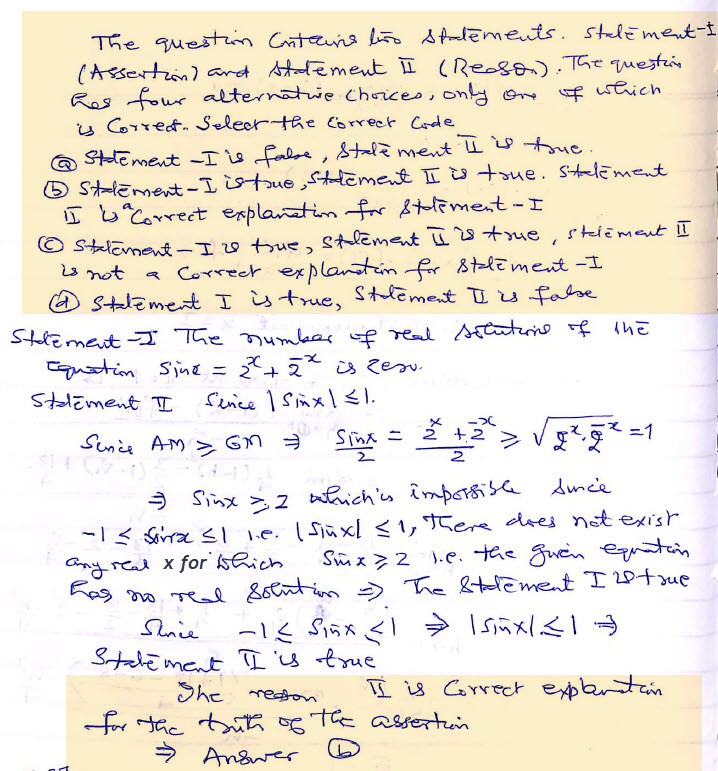 The question Contains two Statements. Statement-I
(Assertion) and Statement II (Reason). The question
has four alternative choices, only one of which
is Correct. Select the Correct Code
(a) Statement -I is false, Statement II is true.
(b) Statement-I is true, Statement II is true. Statement
II is a Correct explanation for Statement - I
(c) Statement - I is true, Statement II is true, statement II
is not a Correct explanation for Statement -I
(d) Statement I is true, Statement II is false
Statement -I The number of real solutions of the
Equation Sinx = 2^x + 2^-x is zero.
Statement II Since |Sinx| ≤ 1.
Since AM ≥ GM ⇒ Sinx/2 = (2^x + 2^-x)/2 ≥ √(2^x . 2^-x) = 1
⇒ Sinx ≥ 2 which is impossible Since
-1 ≤ Sinx ≤ 1 i.e. |Sinx| ≤ 1, There does not exist
any real x for which Sinx ≥ 2 i.e. the given equation
has no real Solution ⇒ The Statement I is true
Since -1 ≤ Sinx ≤ 1 ⇒ |Sinx| ≤ 1 ⇒
Statement II is true
The reason II is Correct explanation
for the truth of the assertion
⇒ Answer (b)